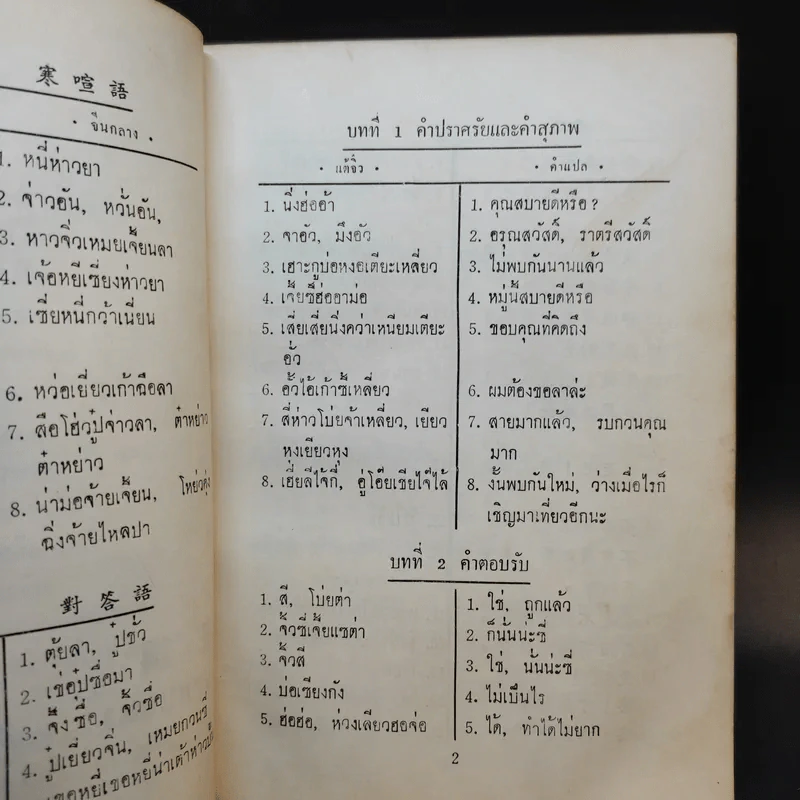 寒喧語
• จีนกลาง •
1. หนี่ห่าวยา
2. จ่าวอัน, หวั่นอัน,
3. หาวจิ่วเหมยเจี้ยนลา
4. เจ้อหยีเซี่ยงห่าวยา
5. เซี่ยหนี่กว้าเนี่ยน
6. หว่อเยี่ยวเก้าฉือลา
7. สือโฮ่วปู๋จ่าวลา, ต๋าหย่าว
ต๋าหย่าว
8. น่าม่อจ้ายเจี้ยน, โหย่วคุ่ง
ฉิ่งจ้ายไหลปา
對答語
1. ตุ้ยลา, ปู๋ชั่ว
2. เซ่อปู๋ซื่อมา
3. จึ้งซื่อ, จั้วซื่อ
4. ปู๋เยี่ยวจิ่น, เหมยกวนซี่
บทที่ 1 คำปราศรัยและคำสุภาพ
• แต้จิ๋ว •
• คำแปล •
1. นิ่งฮ่ออ้า
2. จาอัว, มึงอัว
3. เฮาะกูบ่อหงอเตียะเหลี่ยว
4. เจ็ยซีฮ่ออาม่อ
5. เสี่ยเสี่ยนิ่งคว่าเหนียมเตียะ
อั่ว
6. อั๊วไอ้เก้าซี้เหลี่ยว
7. สี่ห่าวโบ่ยจ้าเหลี่ยว, เยียว
หุงเยียวหุง
8. เฮี่ยลีไจ้กี่, อู่โอ๊ยเชียไจ๊ไล้
1. คุณสบายดีหรือ?
2. อรุณสวัสดิ์, ราตรีสวัสดิ์
3. ไม่พบกันนานแล้ว
4. หมู่นี้สบายดีหรือ
5. ขอบคุณที่คิดถึง
6. ผมต้องขอลาล่ะ
7. สายมากแล้ว, รบกวนคุณ
มาก
8. งั้นพบกันใหม่, ว่างเมื่อไรก็
เชิญมาเที่ยวอีกนะ
บทที่ 2 คำตอบรับ
1. สี, โบ่ยต่า
2. จั้วซี่เจ็ยแซต่า
3. จั้วสี
4. บ่อเซียงกัง
5. ฮ่อฮ่อ, ห่วงเลียวฮอจ่อ
1. ใช่, ถูกแล้ว
2. ก็นั้นน่ะซี่
3. ใช่, นั้นน่ะซี่
4. ไม่เป็นไร
5. ได้, ทำได้ไม่ยาก
2